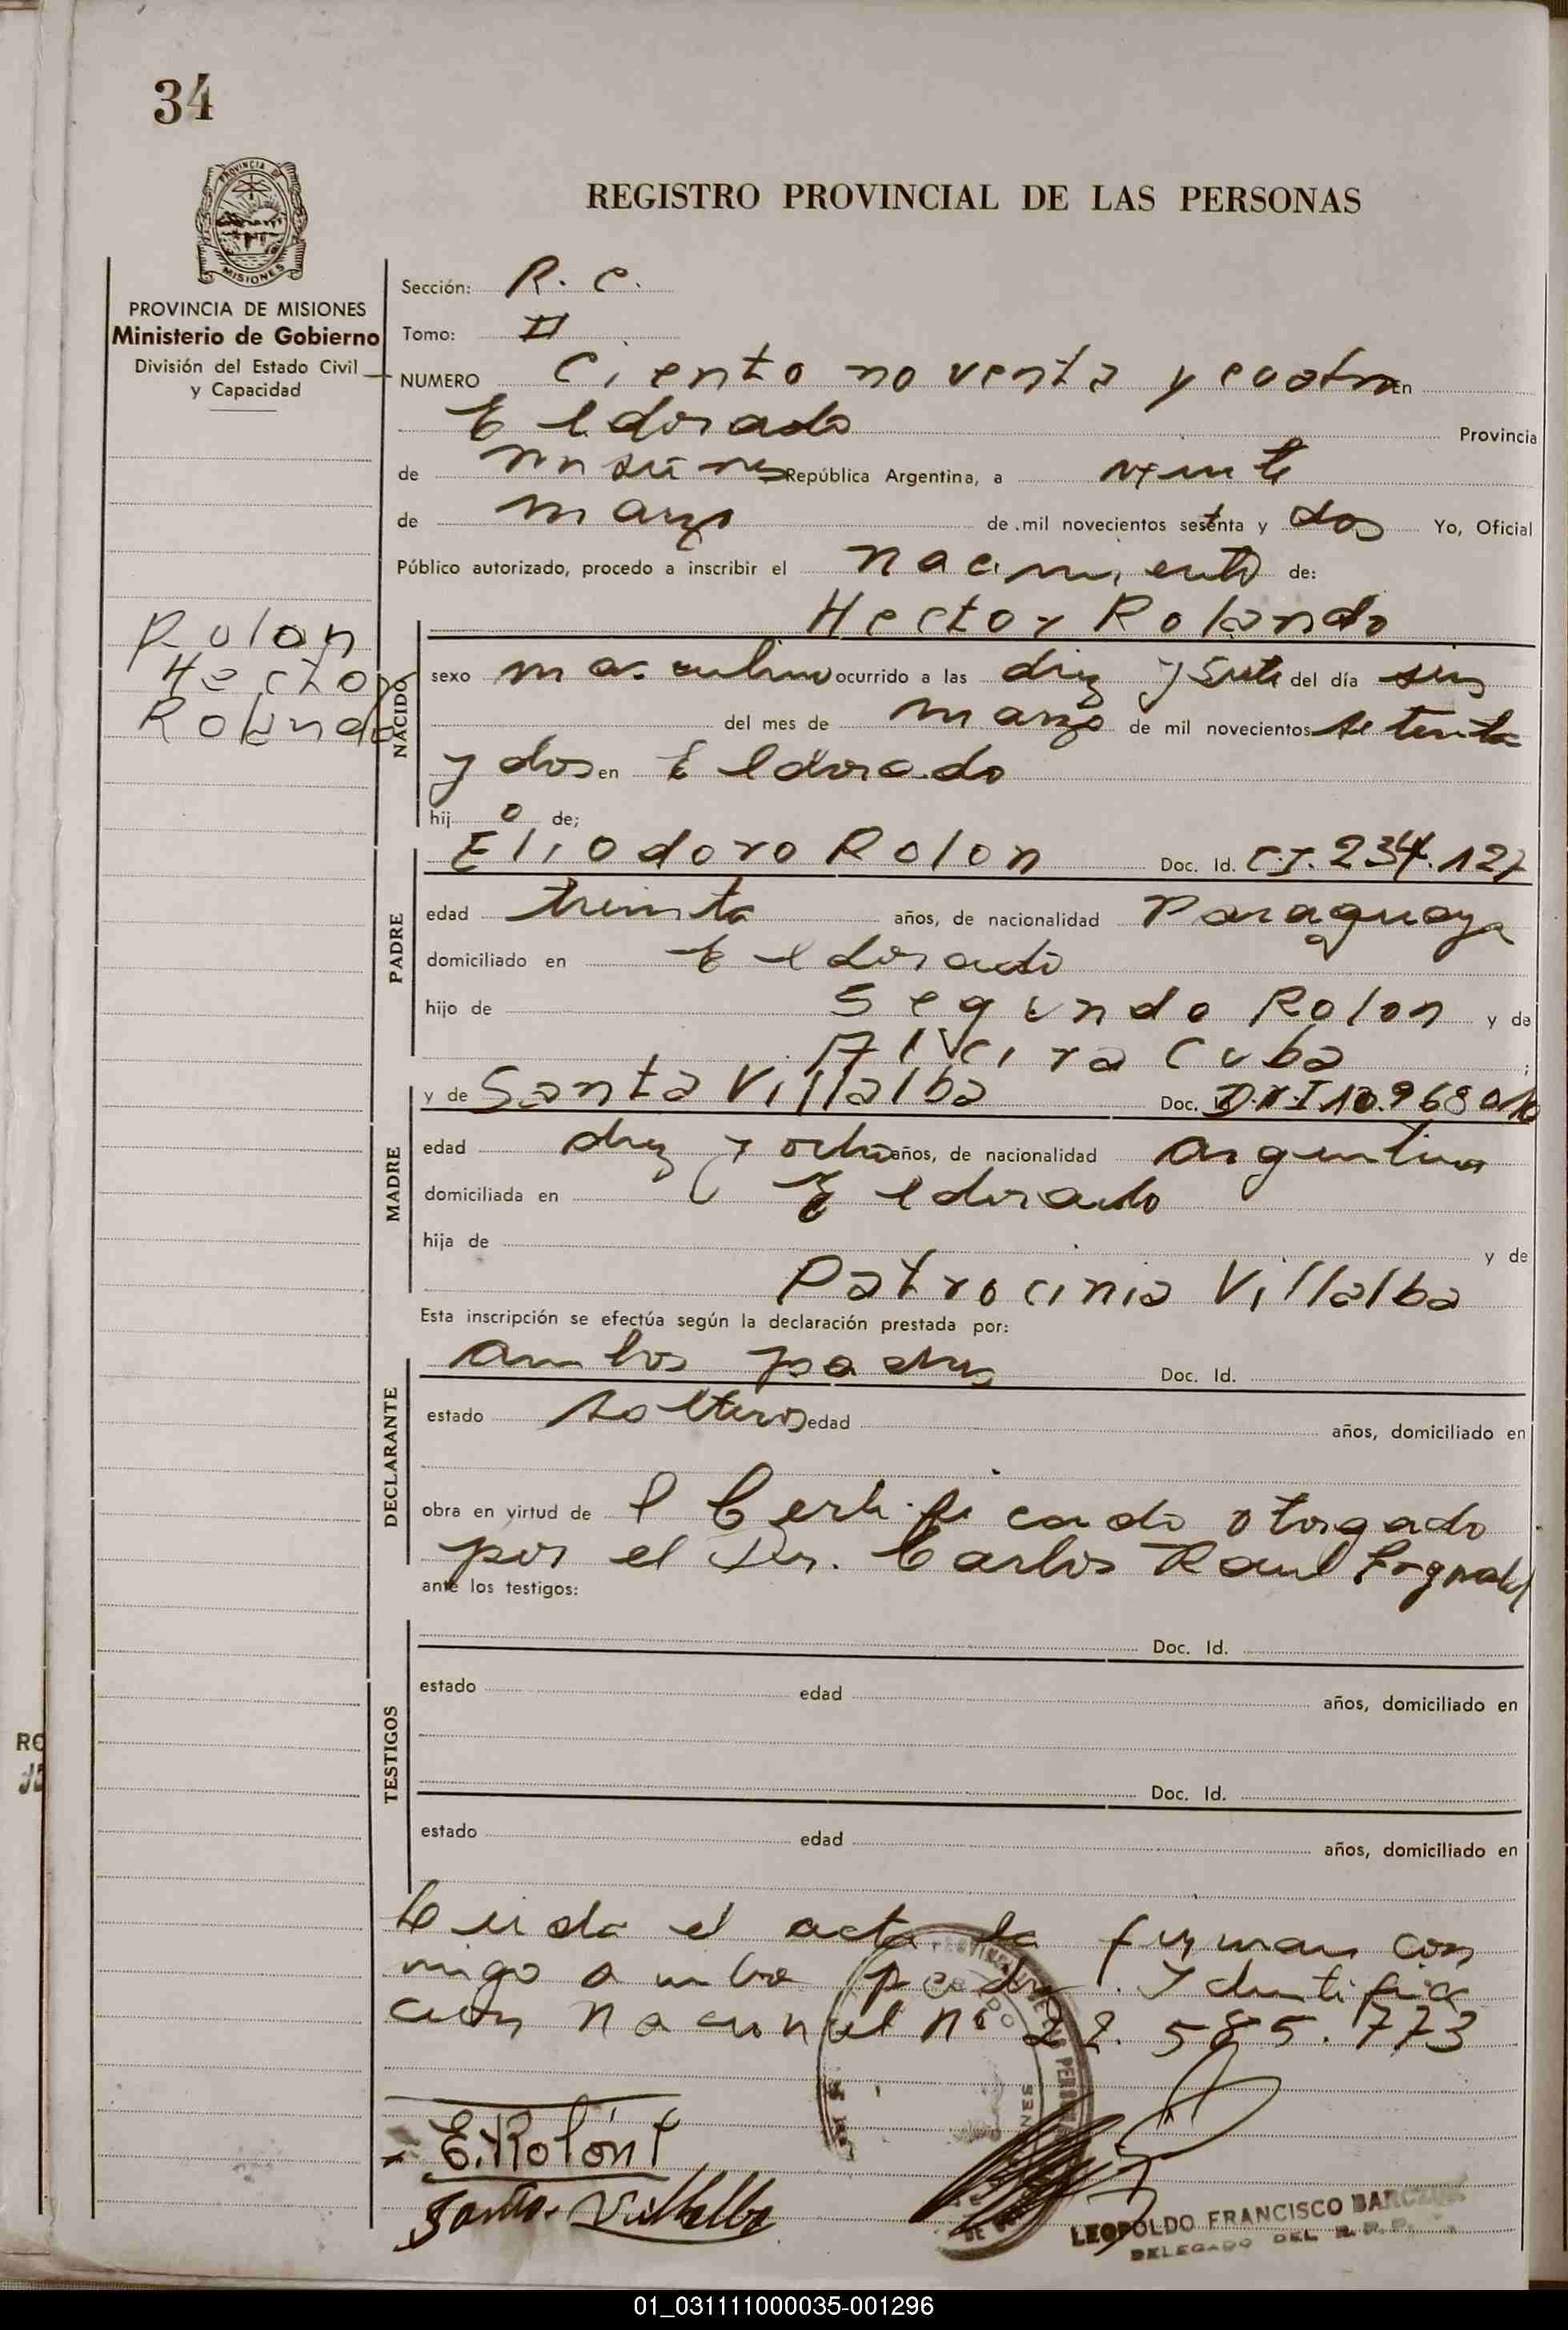 34
PROVINCIA DE MISIONES
REGISTRO PROVINCIAL DE LAS PERSONAS
PROVINCIA DE MISIONES
Ministerio de Gobierno
División del Estado Civil
y Capacidad
Rolon
Hector
Rolando
Sección: R. C.
Tomo: II
NUMERO Ciento noventa y cuatro En
Eldorado Provincia
de Misiones República Argentina, a veinte
de marzo de mil novecientos setenta y dos Yo, Oficial
Público autorizado, procedo a inscribir el nacimiento de:
NACIDO
Hector Rolando
sexo masculino ocurrido a las diez y siete del día seis
del mes de marzo de mil novecientos setenta
y dos en Eldorado
hij o de;
PADRE
Eliodoro Rolon Doc. Id. C.I. 234.127
edad treinta años, de nacionalidad Paraguaya
domiciliado en Eldorado
hijo de Segundo Rolon y de
Alvcira Cuba ;
MADRE
y de Santa Villalba Doc. D.N.I 10.968.010
edad diez y ocho años, de nacionalidad argentina
domiciliada en Eldorado
hija de y de
Patrocinia Villalba
Esta inscripción se efectúa según la declaración prestada por:
DECLARANTE
ambos padres Doc. Id.
estado solteros edad años, domiciliado en
obra en virtud de l Certificado otorgado
por el Dr. Carlos Raul
ante los testigos:
TESTIGOS
Doc. Id.
estado edad años, domiciliado en
Doc. Id.
estado edad años, domiciliado en
Leida el acta la firman con
migo ambos padres. Identifica
cion nacional nº 22.585.773
E. Rolón
Santa Villalba
LEOPOLDO FRANCISCO
DELEGADO DEL R. P. P.
01_031111000035-001296